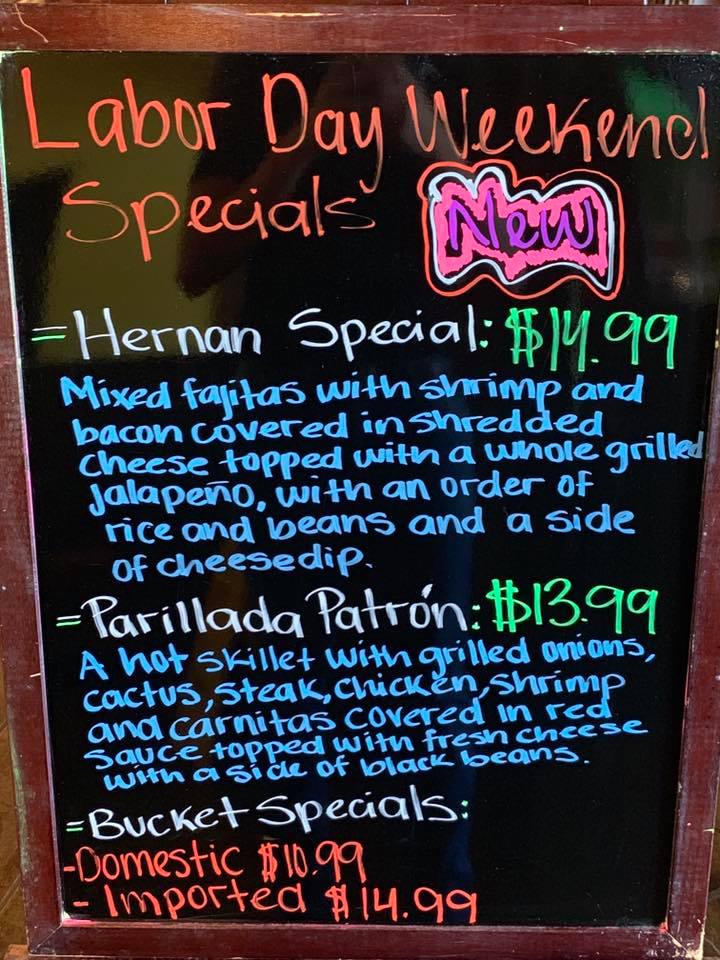 Labor Day Weekend
Specials New
= Hernan Special: $14.99
Mixed fajitas with shrimp and
bacon covered in shredded
cheese topped with a whole grilled
Jalapeño, with an order of
rice and beans and a side
of cheesedip.
= Parillada Patrón: $13.99
A hot skillet with grilled onions,
cactus, steak, chicken, shrimp
and carnitas covered in red
sauce topped with fresh cheese
with a side of black beans.
= Bucket Specials:
- Domestic $10.99
- Imported $14.99